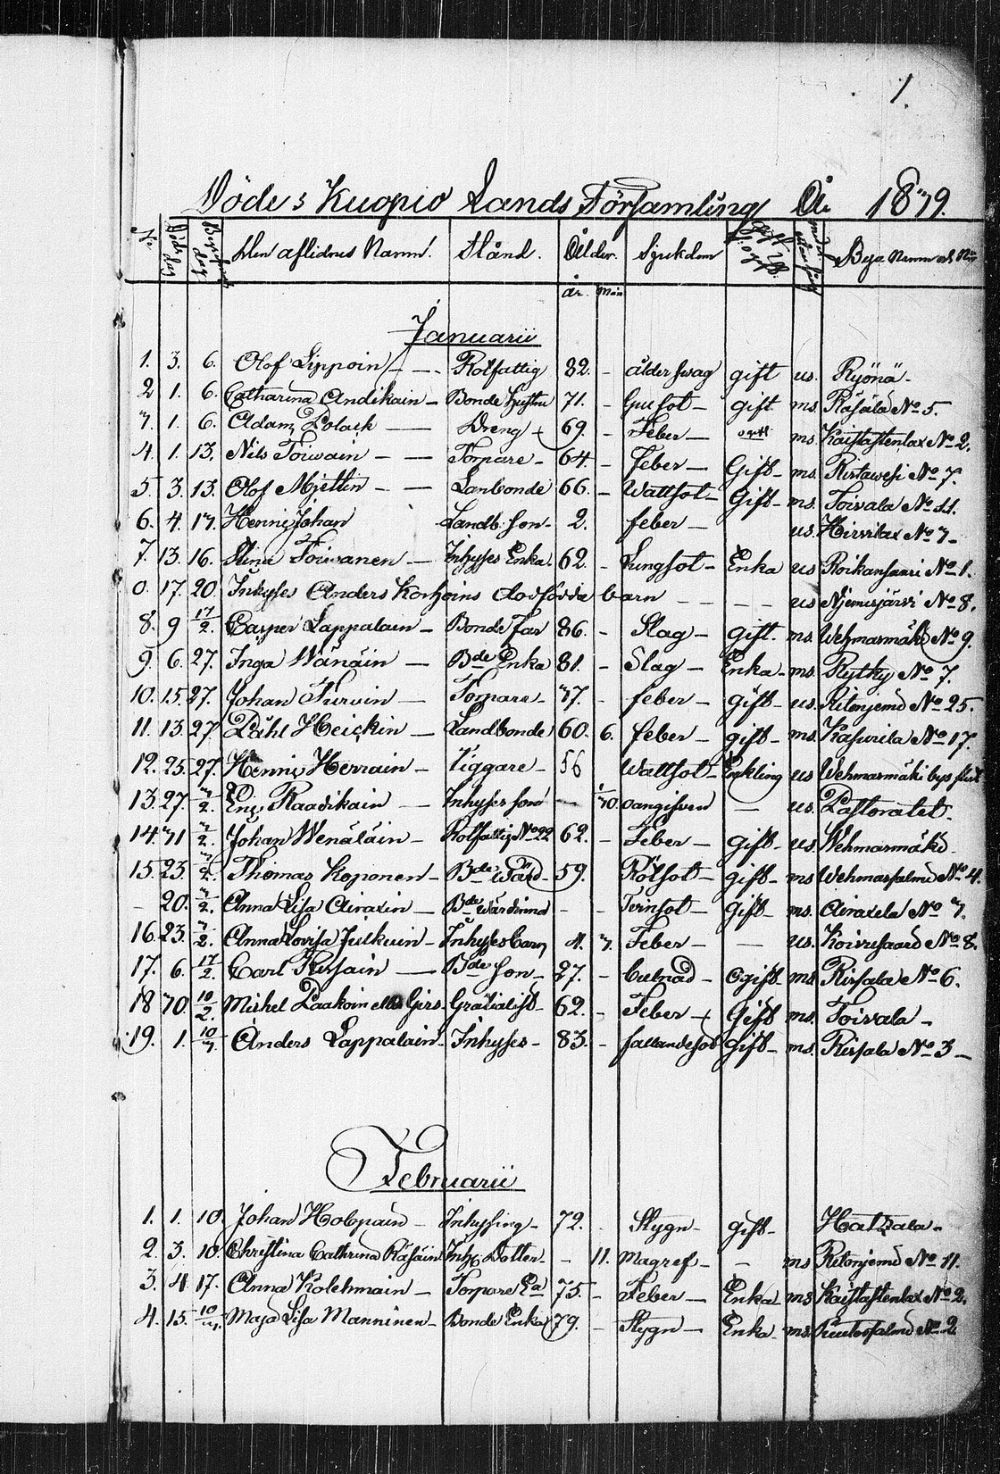 1.
Döde i Kuopio Lands Församling År 1879.
No. Döds dag Begr. dag Den aflidnes Namn. Stånd. Ålder. Sjukdom gift Bya Namn och No
år mån
Januarii
1. 3. 6. Olof Lippoin — Rotfattig 82. - ålderswag gift us. Ryönä -
2 1. 6. Catharina Andikain - Bonde hustru 71. - Gulsot - gift ms. Räsälä No 5.
3. 1. 6. Adam Polack — Dreng - 69. - Feber - ogift ms. Kaistastenlax No 2.
4. 1. 13. Nils Toiwain - - Torpare - 64. - feber - Gift - ms. Ritawesi No 7.
5. 3. 13. Olof Mjettin - - Lanbonde 66. - Wattsot - Gift - ms. Toivala No 11.
6. 4. 17. Henric Johan Landb. son - 2. feber - us. Hirvilax No 7 -
7. 13. 16. Stina Toiwanen - Inhyses Enka. 62. - Lungsot - Enka us Roikansaari No 1.
0. 17. 20. Inhyses Anders Korhoins dödfödda barn - - - us Njemisjärvi No 8.
8. 9 17/2. Casper Lappalain - Bonde far 86. - Slag - gift. ms. Wehmasmäki No 9.
9. 6. 27. Inga Wänäin — Bde Enka 81. - Slag - Enka - ms. Rytky No 7.
10. 15. 27. Johan Turvin - Torpare - 77. - feber - gift - us. Ritoniemi No 25.
11. 13. 27. Påhl Heickin - Landbonde 60. 6. feber - gift - ms. Kasurila No 17.
12. 25. 27. Henric Herrain - Tiggare - 56 Wattsot - Enkling us Wehmasmäki bys
13. 27. Eric Raadikain - Inhyses son - oangifven - us. Pastoratet -
14. 31 Johan Wenäläin - Rotfattig No 22 62. - Feber - gift - us. Wehmasmäki
15. 23. Thomas Koponen - Bde Wärd - 59. Rötsot - gift - ms Wehmasalmi No 4.
- 20. Anna Lisa Airaxin - Bde Wärdinna - - Tvinsot - gift - ms. Airaxela No 7.
16. 23. Anna Lovisa Julkuin - Inhyses barn 4. 7. Feber - - us. Koivusaari No 8.
17. 6. 17/2. Carl Rissain — Bde son - 27. - - Ogift - ms Rissala No 6.
18 30. 10/2. Mickel Laakoin eller Girs - Gratialist - 62. - Feber - Gift ms. Toivala -
19. 1. Anders Lappalain - Inhyses - 83. - fallandesot gift - ms. Rissala No 3 -
Februarii
1. 1. 10. Johan Holopain - Inhysing - 72. - Stygn - gift - Hatzala -
2. 3. 10. Christina Cathrina Räsäin Inh. Dotter - - 11. Magref - - ms Ritoniemi No 11.
3. 4 17. Anna Kolehmain - Torpare Ea 75. - Feber - Enka ms Kaistastenlax No 2.
4. 15. Maja Lisa Manninen - Bonde Enka 79. - Stygn - Enka - ms. No 2